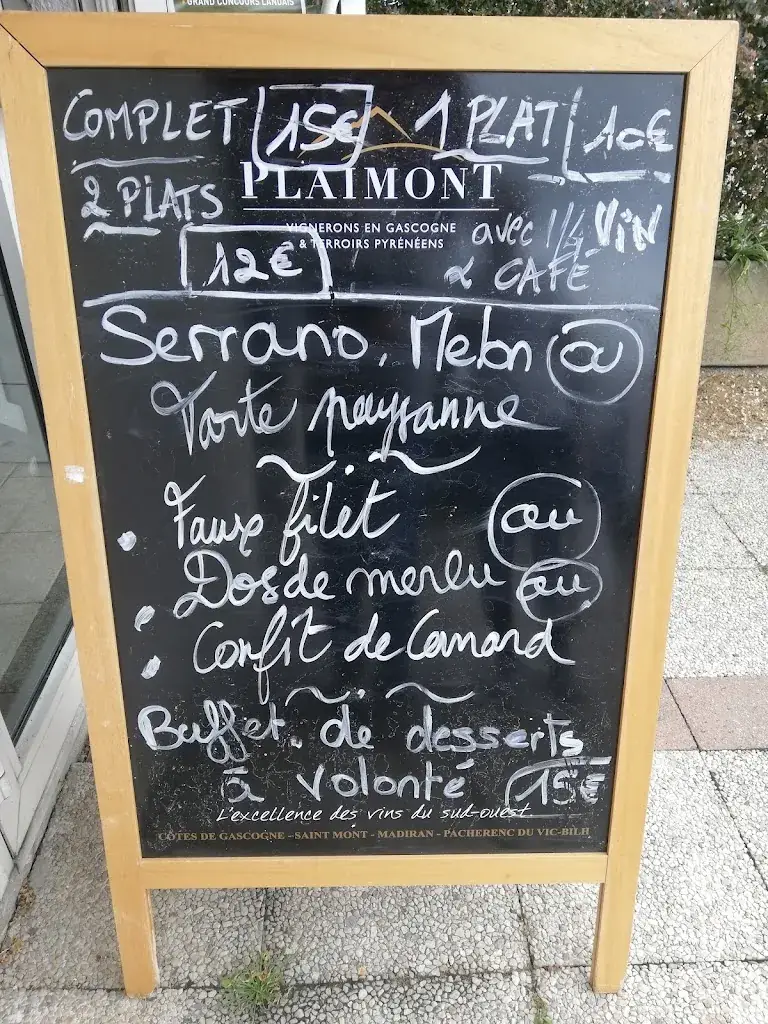 GRAND CONCOURS LANDAIS
COMPLET 15€ 1 PLAT 10€
2 PLATS
PLAIMONT
VIGNERONS EN GASCOGNE
& TERROIRS PYRÉNÉENS
avec 1/4 VIN
12€
& CAFÉ
Serrano, Melon ou
Tarte paysanne
Faux filet ou
Dos de merlu ou
Confit de Canard
Buffet de desserts
à volonté 15€
L'excellence des vins du sud-ouest
CÔTES DE GASCOGNE - SAINT MONT - MADIRAN - PACHERENC DU VIC-BILH